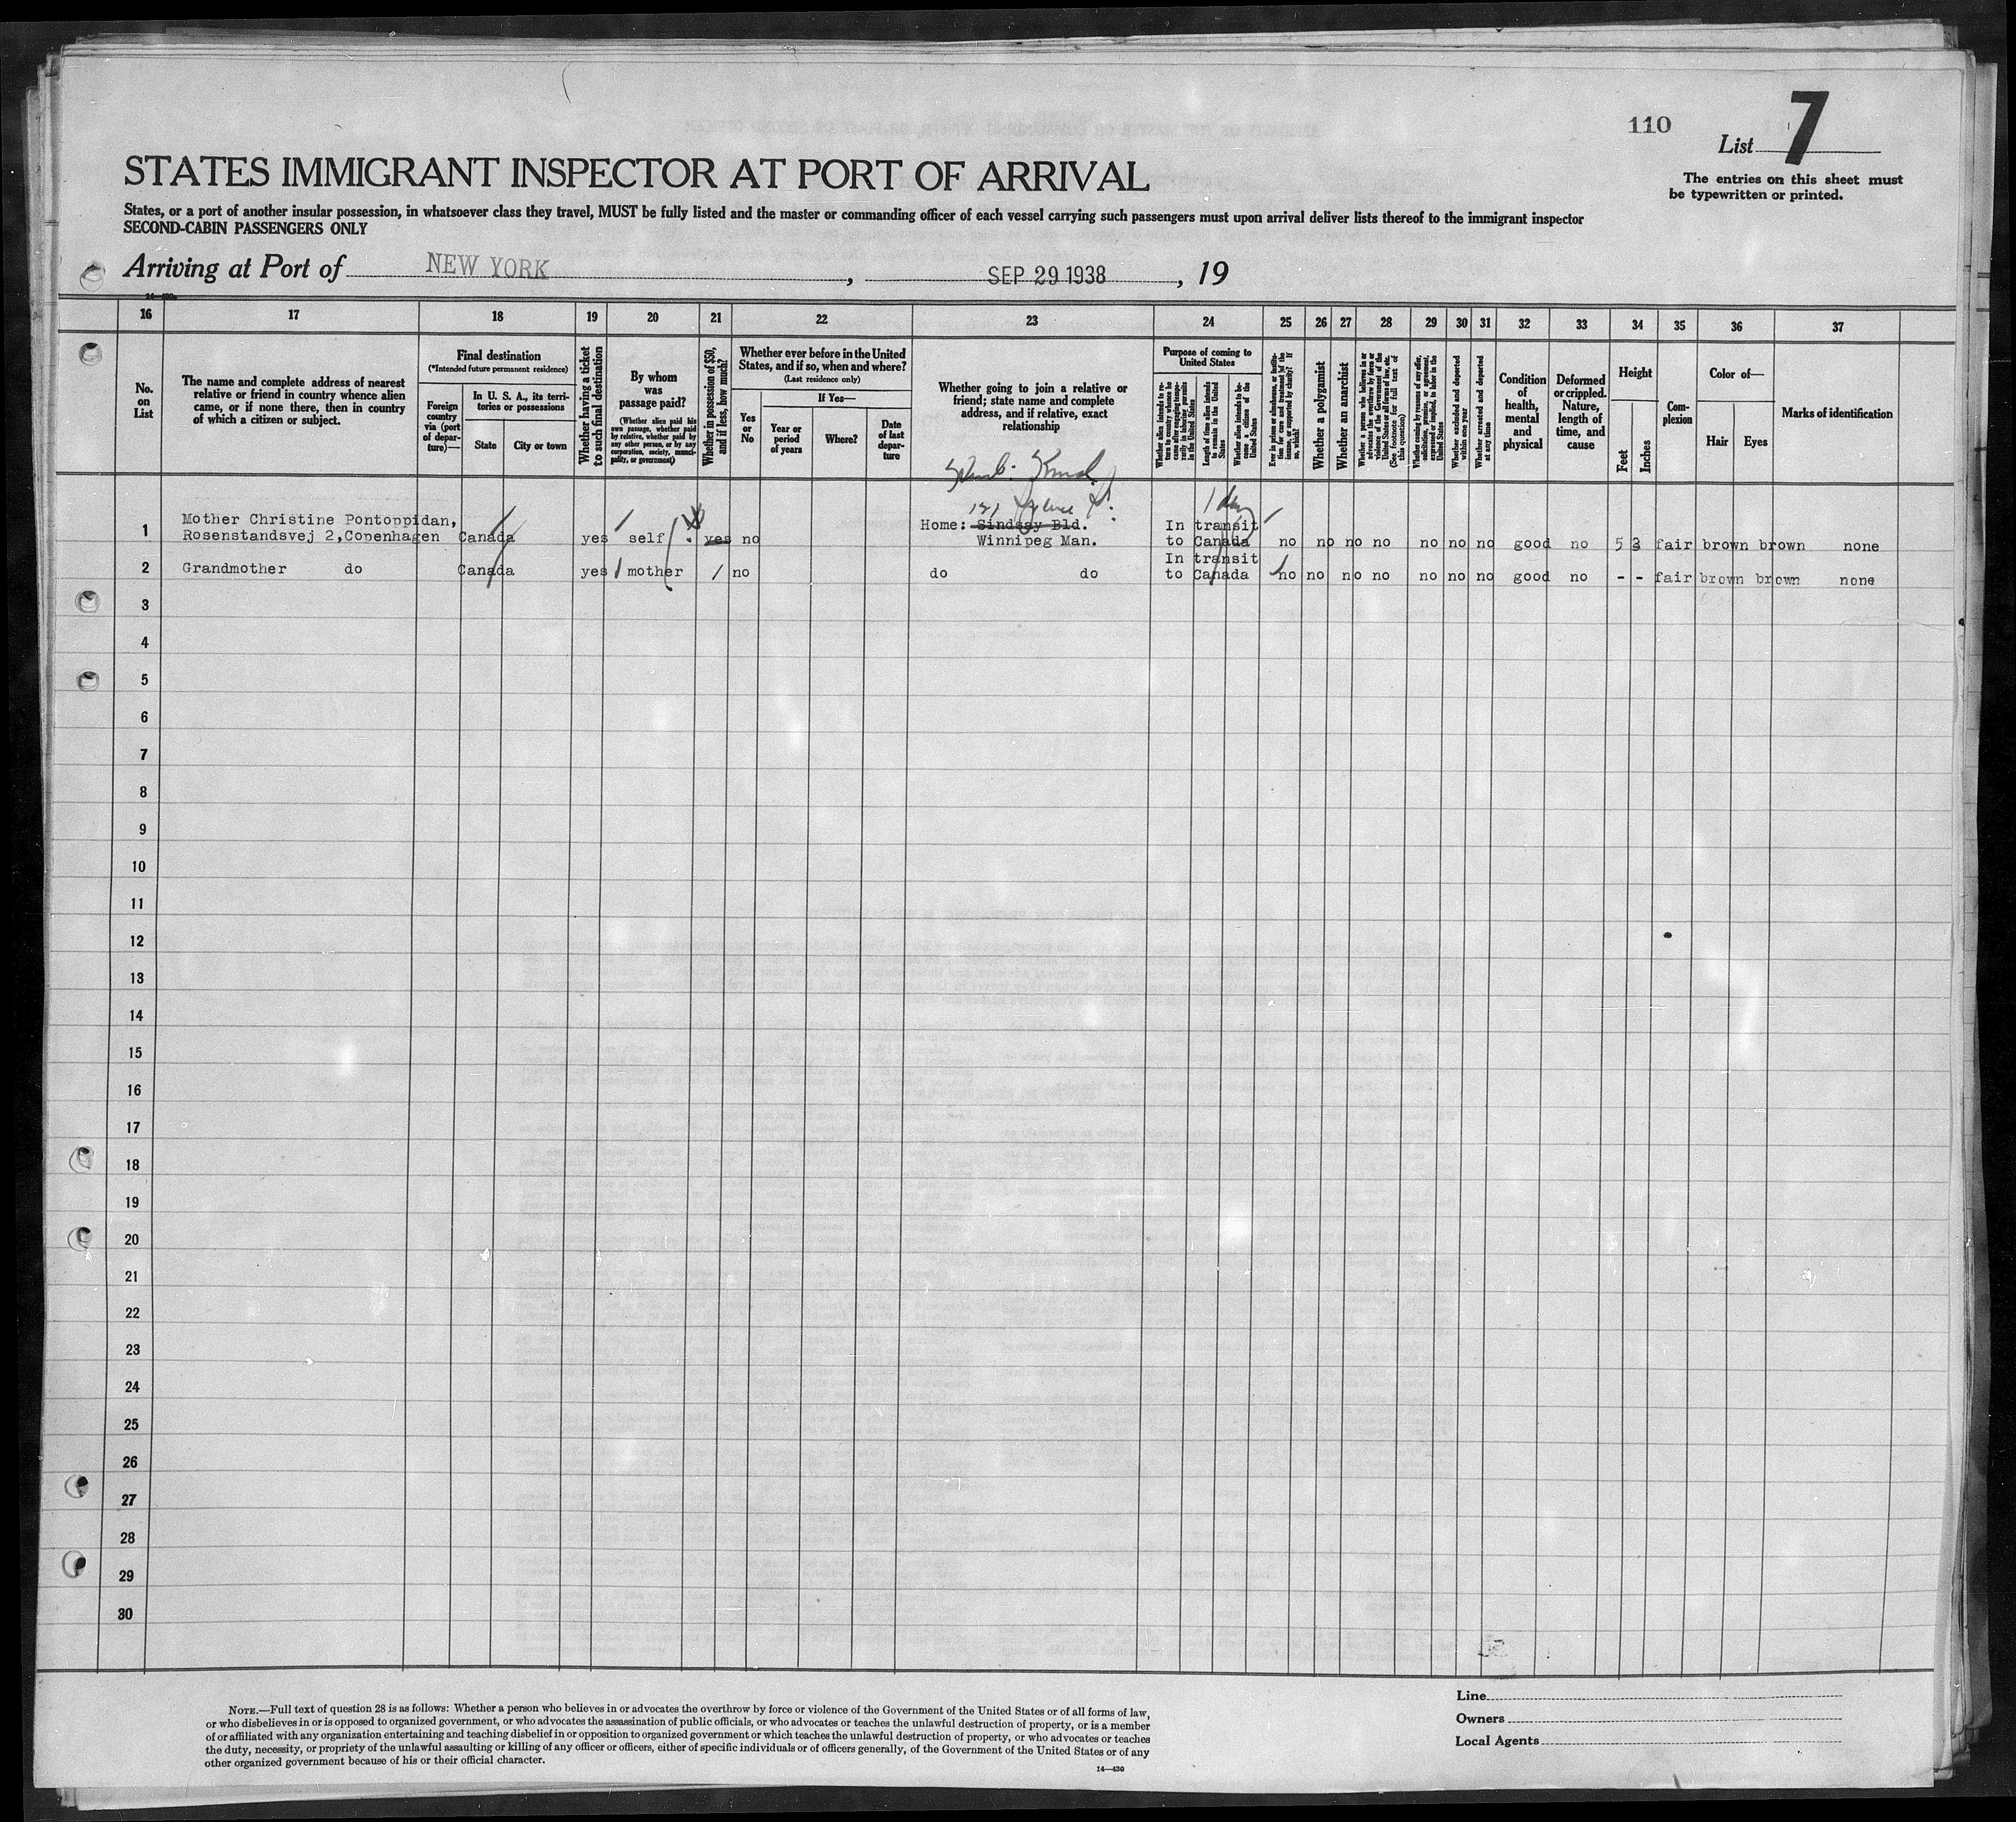 110
List 7
The entries on this sheet must
be typewritten or printed.
STATES IMMIGRANT INSPECTOR AT PORT OF ARRIVAL
States, or a port of another insular possession, in whatsoever class they travel, MUST be fully listed and the master or commanding officer of each vessel carrying such passengers must upon arrival deliver lists thereof to the immigrant inspector
SECOND-CABIN PASSENGERS ONLY
Arriving at Port of NEW YORK, SEP 29 1938, 19
16 17 18 19 20 21 22 23 24 25 26 27 28 29 30 31 32 33 34 35 36 37
No. on List
The name and complete address of nearest
relative or friend in country whence alien
came, or if none there, then in country
of which a citizen or subject.
Final destination
(*Intended future permanent residence)
Foreign country via (port of departure)—
In U. S. A., its territories or possessions
State
City or town
Whether having a ticket to such final destination
By whom was passage paid?
(Whether alien paid his own passage, whether paid by relative, whether paid by any other person, or by any corporation, society, municipality, or government)
Whether in possession of $50, and if less, how much?
Whether ever before in the United
States, and if so, when and where?
(Last residence only)
Yes or No
If Yes—
Year or period of years
Where?
Date of last departure
Whether going to join a relative or
friend; state name and complete
address, and if relative, exact
relationship
Purpose of coming to United States
Whether alien intends to return to country whence he came after engaging temporarily in laboring pursuits in the United States
Length of time alien intends to remain in the United States
Whether alien intends to become a citizen of the United States
Ever in prison or almshouse or institution for care and treatment of the insane, or supported by charity? If so, which?
Whether a polygamist
Whether an anarchist
Whether a person who believes in or advocates the overthrow by force or violence of the Government of the United States or all forms of law, etc. (See footnote for full text of this question)
Whether coming by reasons of any offer, solicitation, promise, or agreement, expressed or implied, to labor in the United States
Whether excluded and deported within one year
Whether arrested and deported at any time
Condition of health, mental and physical
Deformed or crippled. Nature, length of time, and cause
Height
Feet
Inches
Complexion
Color of—
Hair
Eyes
Marks of identification
1 day
1 Mother Christine Pontoppidan,
Rosenstandsvej 2,Copenhagen Canada yes self yes no Home: Sindsay Bld.
Winnipeg Man. In transit
to Canada no no no no no no no good no 5 3 fair brown brown none
2 Grandmother do Canada yes mother / no do do In transit
to Canada no no no no no no no good no - - fair brown brown none
3
4
5
6
7
8
9
10
11
12
13
14
15
16
17
18
19
20
21
22
23
24
25
26
27
28
29
30
NOTE.—Full text of question 28 is as follows: Whether a person who believes in or advocates the overthrow by force or violence of the Government of the United States or of all forms of law,
or who disbelieves in or is opposed to organized government, or who advocates the assassination of public officials, or who advocates or teaches the unlawful destruction of property, or is a member
of or affiliated with any organization entertaining and teaching disbelief in or opposition to organized government or which teaches the unlawful destruction of property, or who advocates or teaches
the duty, necessity, or propriety of the unlawful assaulting or killing of any officer or officers, either of specific individuals or of officers generally, of the Government of the United States or of any
other organized government because of his or their official character.
14—430
Line
Owners
Local Agents